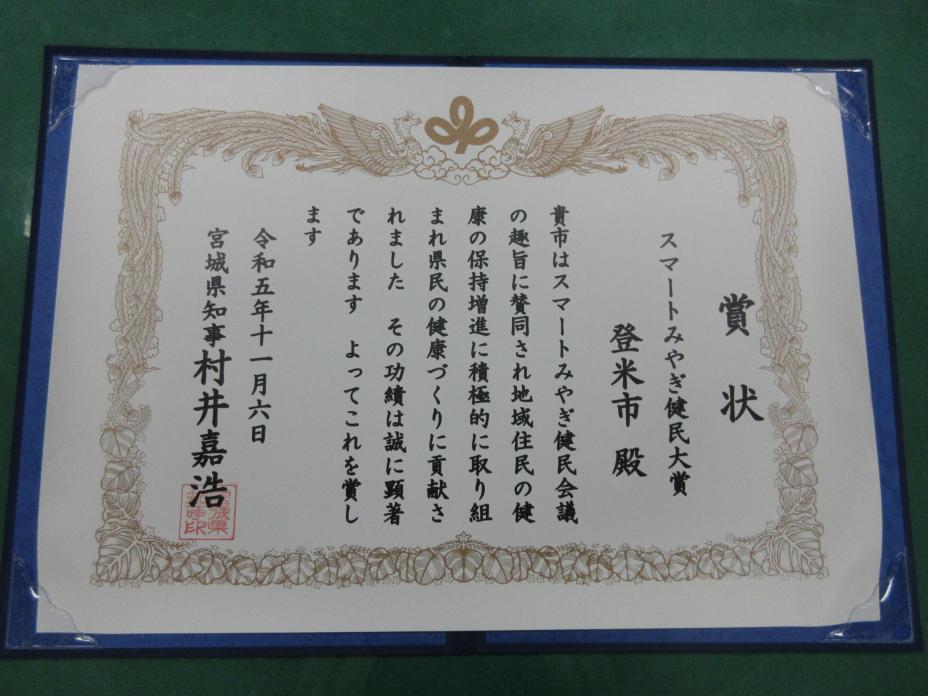 賞状
スマートみやぎ健民大賞
登米市 殿
貴市はスマートみやぎ健民会議
の趣旨に賛同され地域住民の健
康の保持増進に積極的に取り組
まれ県民の健康づくりに貢献さ
れました その功績は誠に顕著
であります よってこれを賞し
ます
令和五年十一月六日
宮城県知事 村井嘉浩